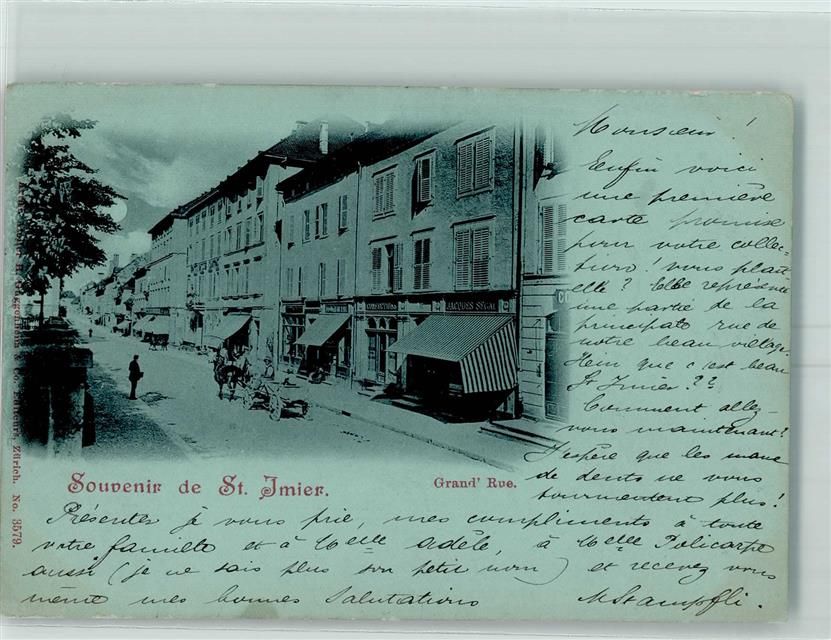 Monsieur !
Enfin voici
une première
carte promise
pour votre collec=
tion ! vous plaît
elle ? Elle représente
une partie de la
principale rue de
notre beau village.
Hein que c'est beau
St Imier ??
Comment allez-
vous maintenant ?
J'espère que les maux
de dents ne vous
tourmentent plus !
JACQUES SEGAL
Souvenir de St. Imier.
Grand' Rue.
& Co. Editeurs, Zürich. No. 3579.
Présentez je vous prie, mes compliments à toute
votre famille et à Melle Adèle, à Melle Policarpe
aussi (je ne sais plus son petit nom) et recevez vous
même mes bonnes salutations
M Stampfli.